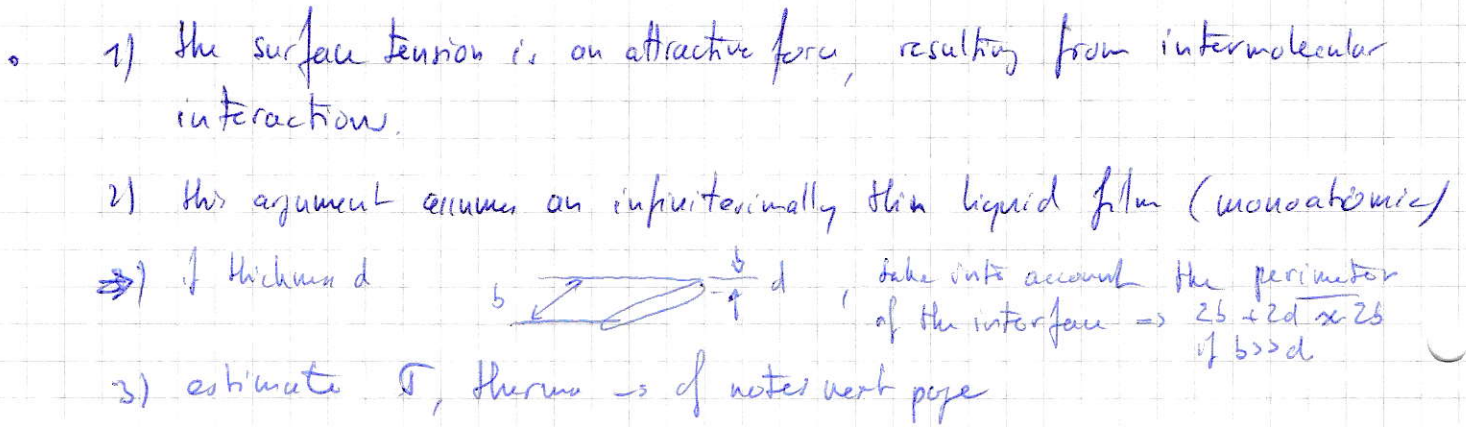 1) the surface tension is an attractive force, resulting from intermolecular
interactions.
2) this argument assumes an infinitesimally thin liquid film (monoatomic)
⇒) if thickness d b d , take into account the perimeter
of the interface => 2b + 2d ≈ 2b
if b>>d
3) estimate σ, thermo -> cf notes next page